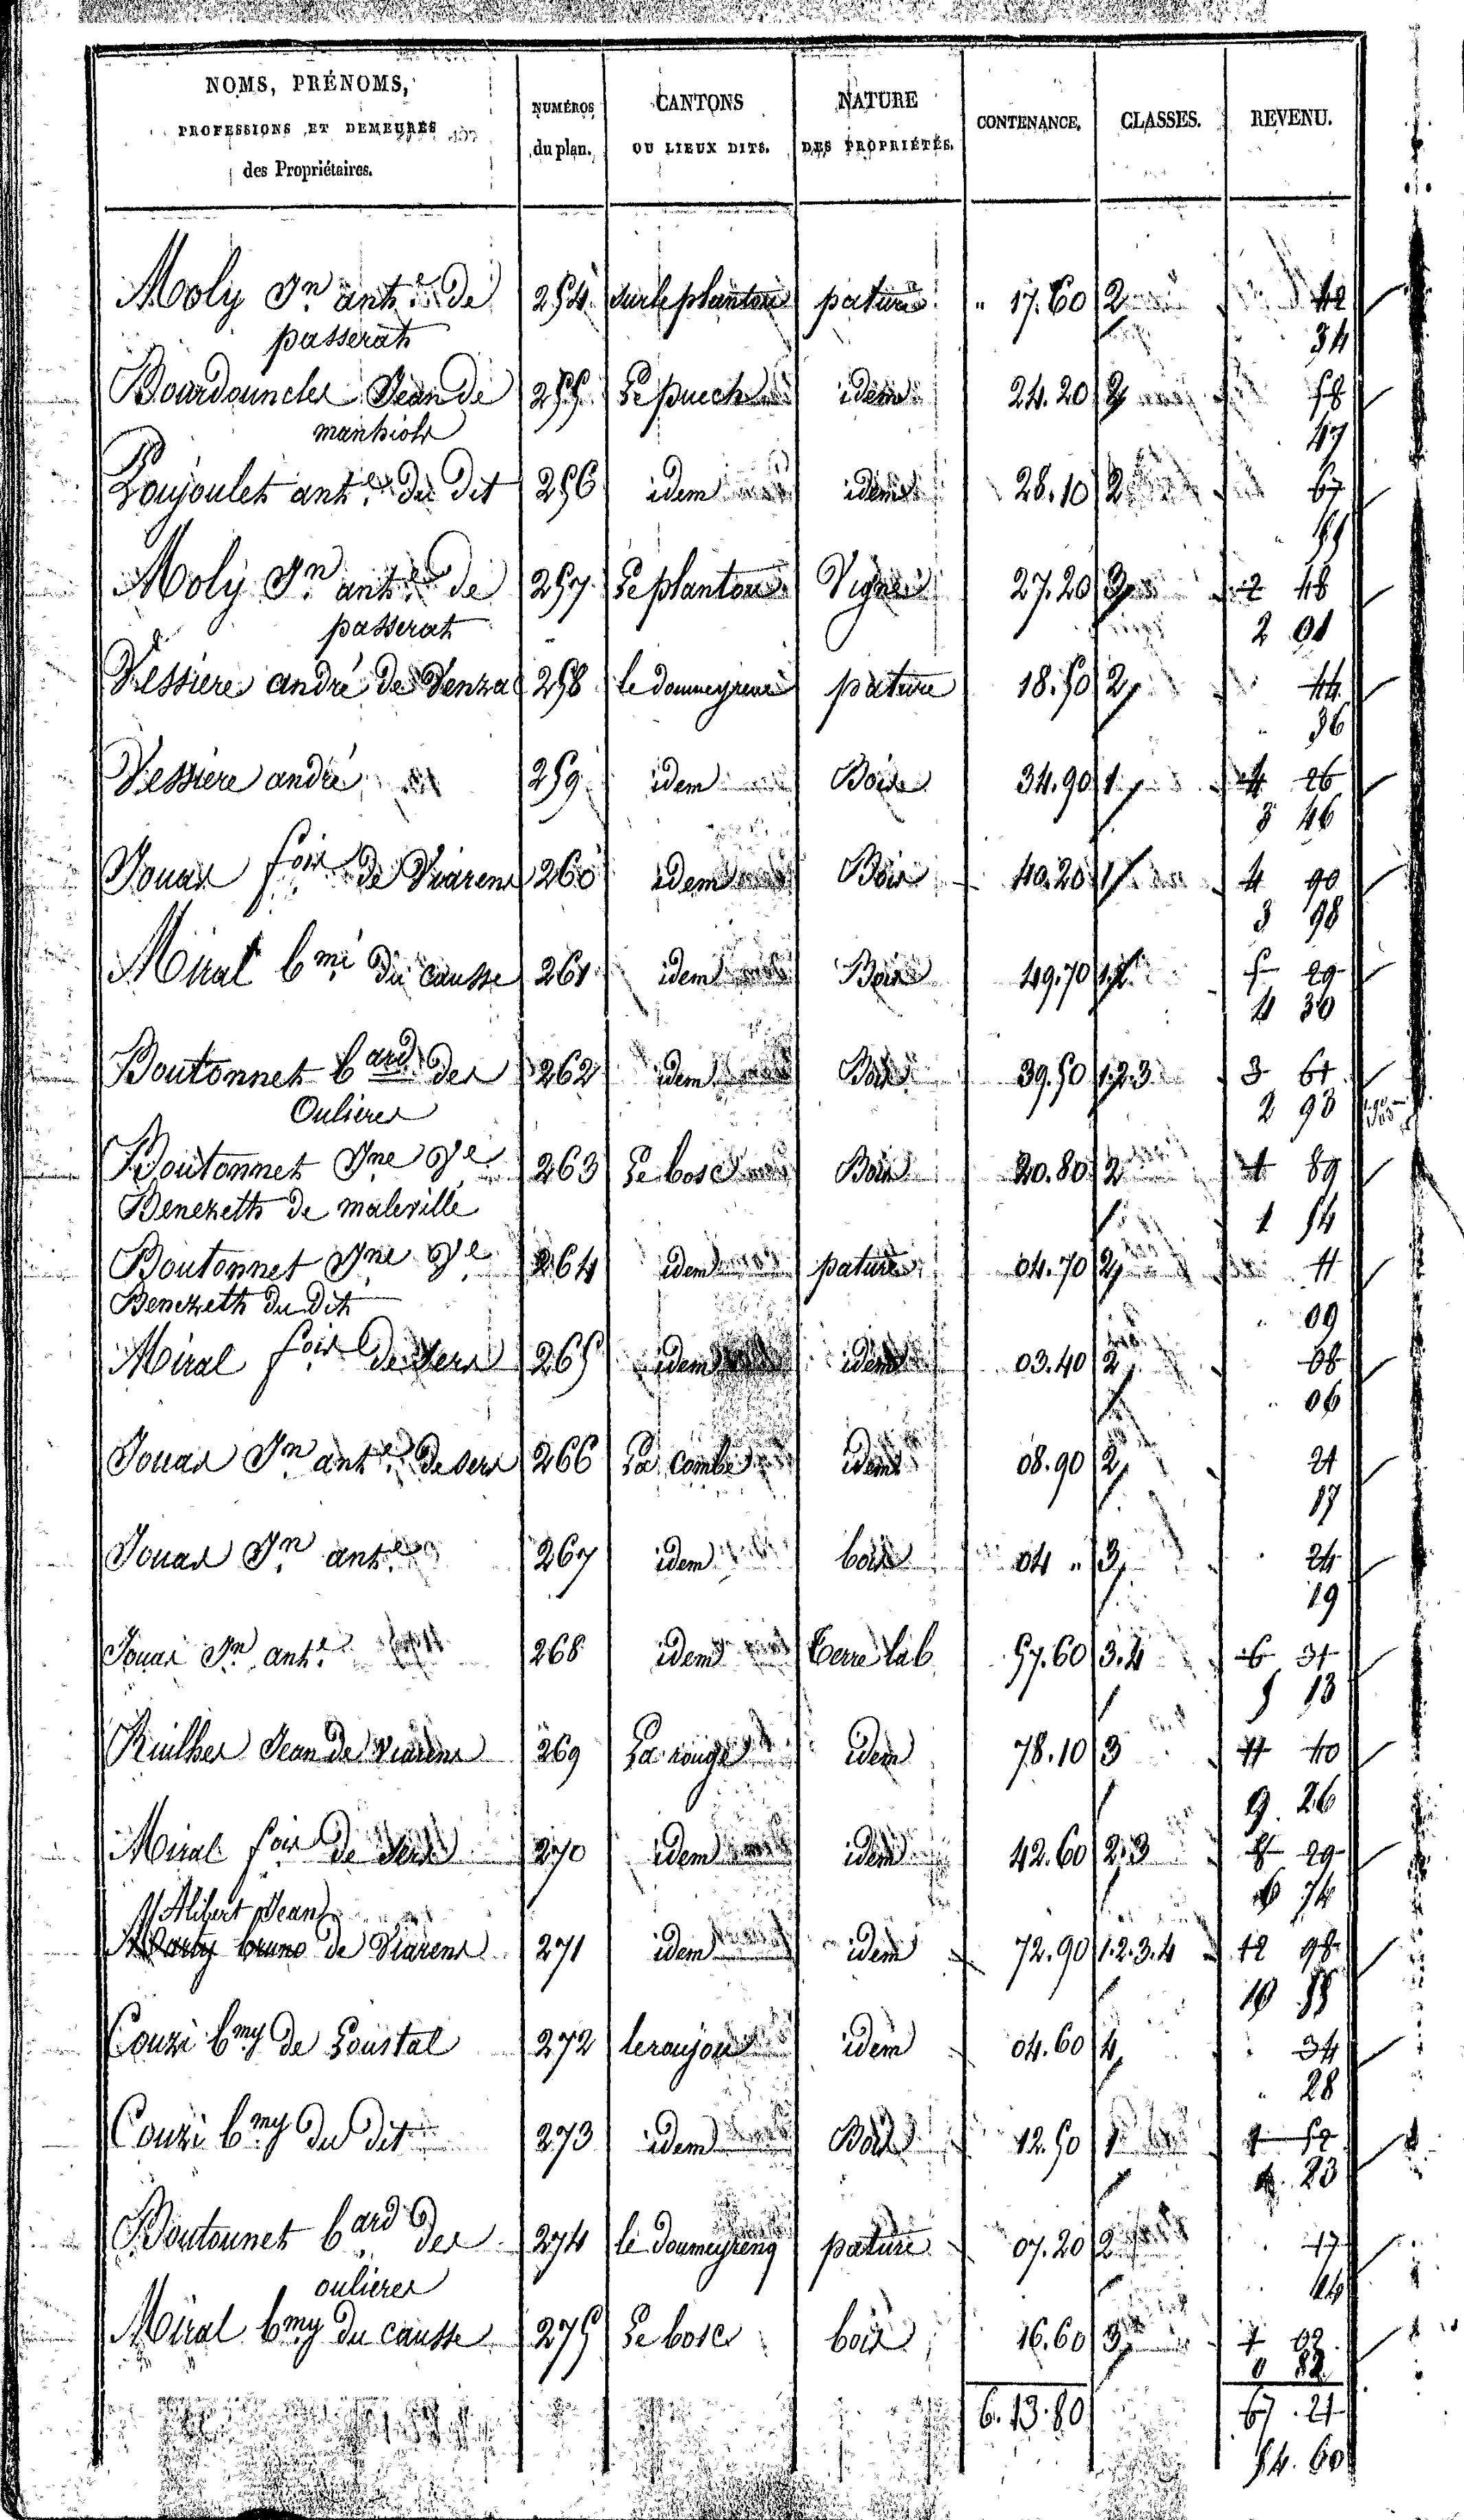 NOMS, PRÉNOMS, PROFESSIONS ET DEMEURES des Propriétaires. NUMÉROS du plan. CANTONS OU LIEUX DITS. NATURE DES PROPRIÉTÉS. CONTENANCE. CLASSES. REVENU.
Moly Jn ante de 254 pature 17.60 2 42
passerat 34
Jean de 255 Le puech idem 24.20 2 58
47
ante du dit 256 idem idem 28.10 2 67
55
Moly Jn ante de 257 Le plantou Vigne 27.20 3 2 48
passerat 2 01
Vessiere andré de 258 pature 18.50 2 44
36
Vessiere andré 259 idem Bois 34.90 1 4 26
3 46
Jouas fois de Viarens 260 idem Bois 40.20 4 90
3 98
Miral bmi du causse 261 idem Bois 49.70 5 29
4 30
Boutonnet bard des 262 idem Bois 39.50 1.2.3 3 61
Oulieres 2 93
Boutonnet Jne Ve 263 Le bosc Bois 20.80 2 1 89
Benezeth de maleville 1 54
Boutonnet Jne Ve 264 idem pature 04.70 2 11
Benezeth du dit 09
Miral fois de 265 idem idem 03.40 2 08
06
Jouas Jn ante de 266 La Combe idem 08.90 2 21
17
Jouas Jn ante 267 idem bois 04 " 3 24
19
Jouas Jn ante 268 idem terre lab. 57.60 3.4 6 31
5 13
Jean de Viarens 269 La rouge idem 78.10 3 11 40
9 26
Miral fois de 270 idem idem 42.60 2.3 8 29
6 74
Alibert Jean
Marty bruno de Viarens 271 idem idem 72.90 1.2.3.4 12 98
10 55
Couzi bmy de Loustal 272 idem 04.60 4 34
28
Couzi bmy du dit 273 idem Bois 12.50 1 1 52
1 23
Boutonnet bard des 274 pature 07.20 2 17
oulieres 14
Miral bmy du causse 275 Le bosc bois 16.60 3 1 02
0 82
6.13.80 67.21
54.60